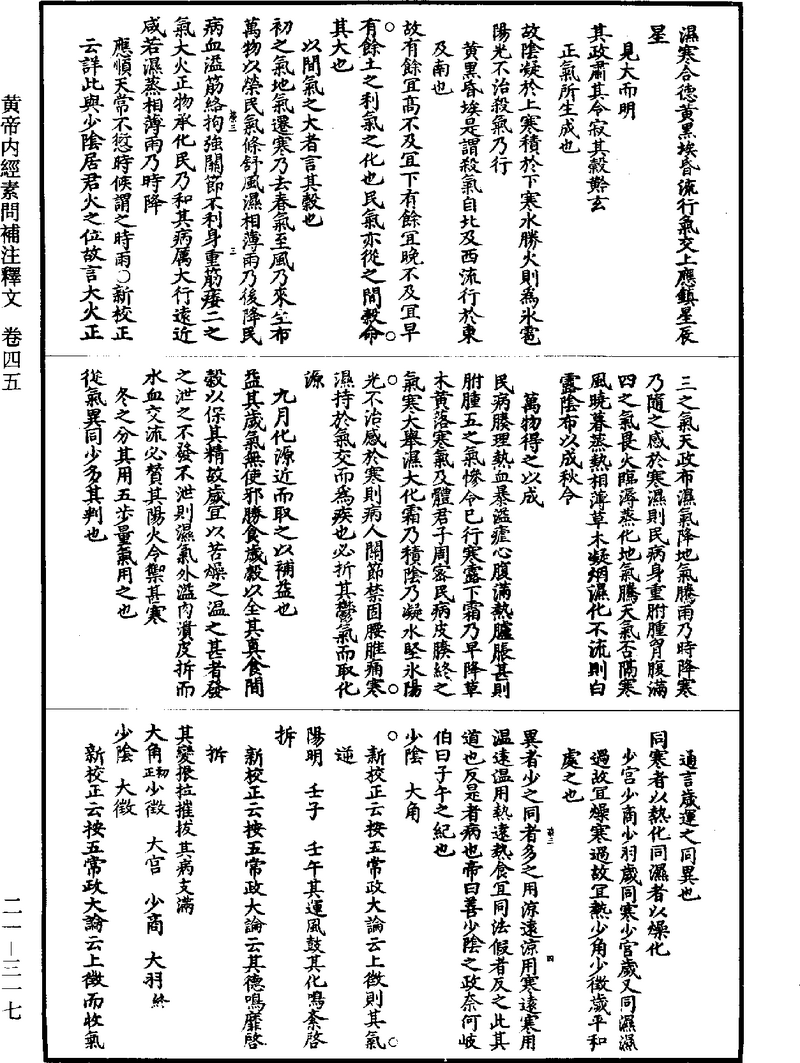 濕寒合德黃黑埃昏流行氣交上應鎮星辰
星
見大而明
其政肅其令寂其穀黅玄
正氣所生成也
故陰凝於上寒積於下寒水勝火則爲氷雹
陽光不治殺氣乃行
黃黑昏埃是謂殺氣自北及西流行於東
及南也
故有餘宜高不及宜下有餘宜晚不及宜早
有餘土之利氣之化也民氣亦從之間穀命
其大也
以間氣之大者言其穀也
初之氣地氣遷寒乃去春氣至風乃來生布
萬物以榮民氣條舒風濕相薄雨乃後降民
病血溢筋絡拘強關節不利身重筋痿二之
氣大火正物承化民乃和其病厲大行遠近
咸若濕蒸相薄雨乃時降
應順天常不愆時候謂之時雨○新校正
云詳此與少陰居君火之位故言大火正
三之氣天政布濕氣降地氣騰雨乃時降寒
乃隨之感於寒濕則民病身重胕腫胷腹滿
四之氣畏火臨溽蒸化地氣騰天氣否隔寒
風曉暮蒸熱相薄草木凝烟濕化不流則白
露陰布以成秋令
萬物得之以成
民病腠理熱血暴溢瘧心腹滿熱臚脹甚則
胕腫五之氣慘令已行寒露下霜乃早降草
木黃落寒氣及體君子周密民病皮腠終之
氣寒大舉濕大化霜乃積陰乃凝水堅氷陽
光不治感於寒則病人關節禁固腰脽痛寒
濕持於氣交而爲疾也必折其鬱氣而取化
源
九月化源近而取之以補益也
益其歲氣無使邪勝食歲穀以全其真食間
穀以保其精故歲宜以苦燥之温之甚者發
之泄之不發不泄則濕氣外溢肉潰皮拆而
水血交流必贊其陽火令禦甚寒
冬之分其用五步量氣用之也
從氣異同少多其判也
通言歲運之同異也
同寒者以熱化同濕者以燥化
少宮少商少羽歲同寒少宮歲又同濕濕
過故宜燥寒過故宜熱少角少徵歲平和
處之也
異者少之同者多之用涼遠涼用寒遠寒用
温遠温用熱遠熱食宜同法假者反之此其
道也反是者病也帝曰善少陰之政奈何岐
伯曰子午之紀也
少陰 大角
新校正云按五常政大論云上徵則其氣
逆
陽明 壬子 壬午其運風鼓其化鳴紊啓
拆
新校正云按五常政大論云其德鳴靡啓
拆
其變振拉摧拔其病支滿
大角初正少徵 大宮 少商 大羽終
少陰 大徵
新校正云按五常政大論云上徵而收氣
黄帝内經素問補注釋文 卷四五
二一—三一七